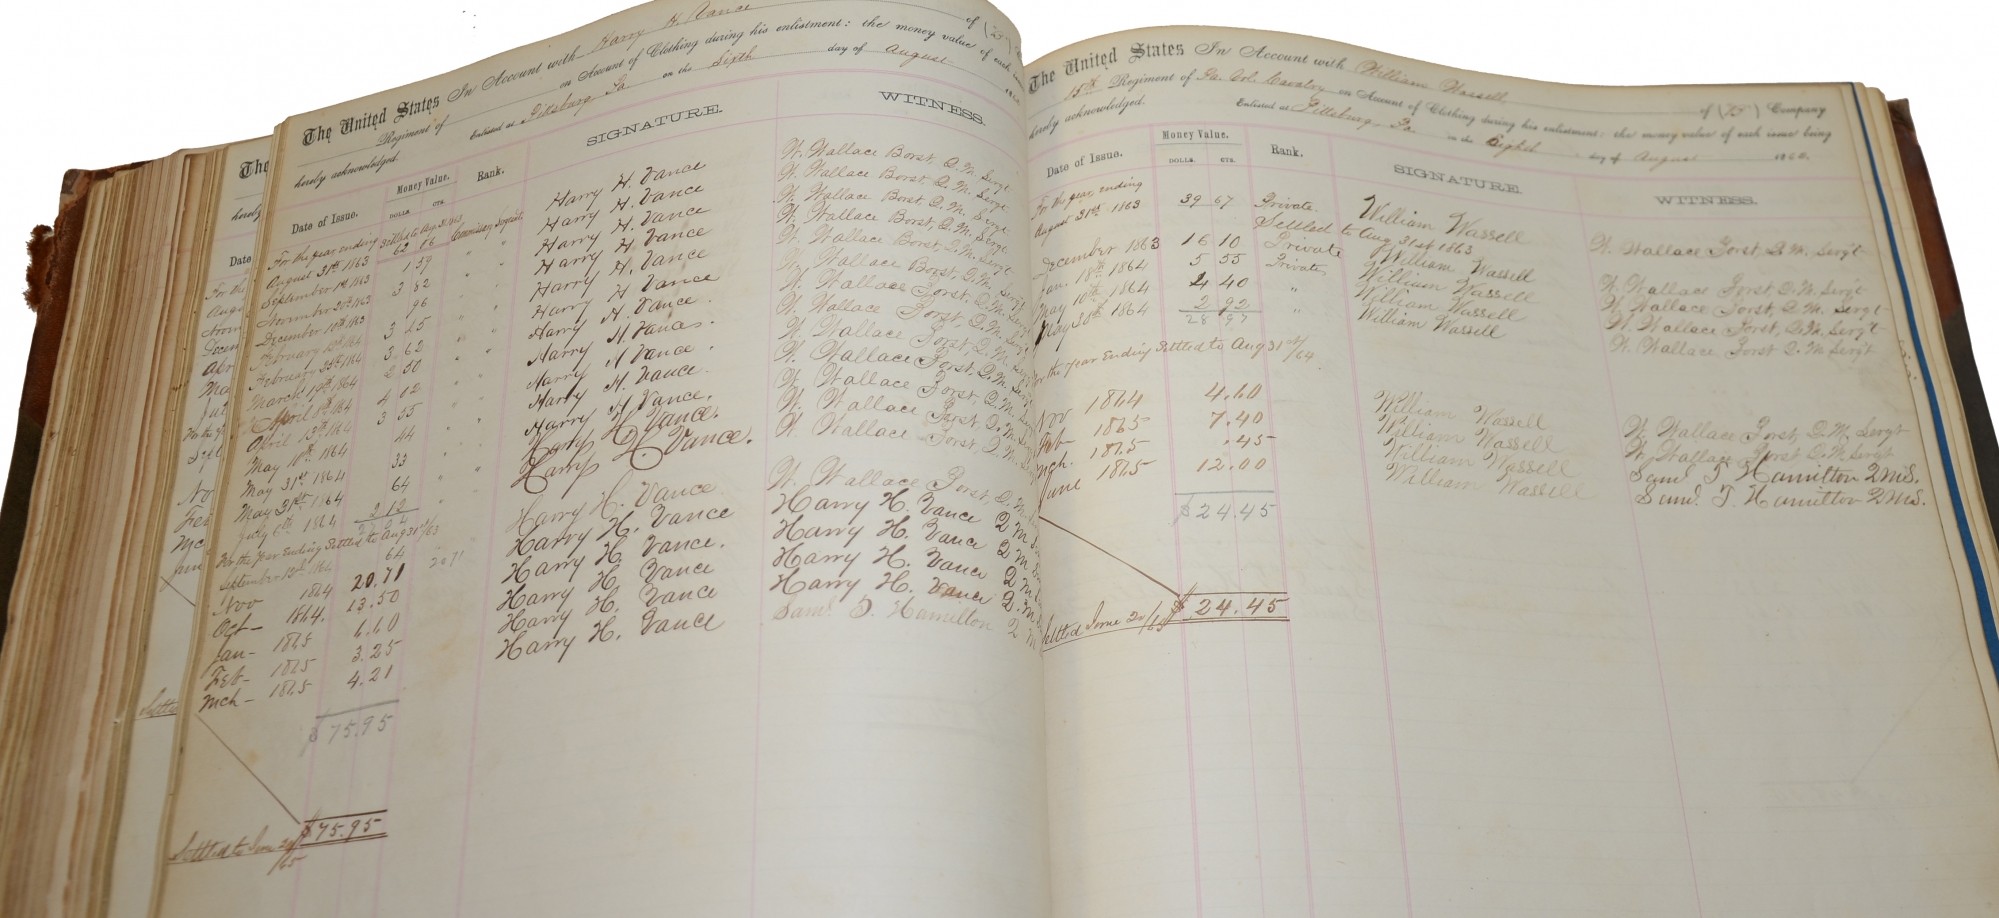 The United States In Account with Harry H. Vance of (
Regiment of on Account of Clothing during his enlistment: the money value of each
hereby acknowledged. Enlisted at Pittsburg, Pa on the Sixth day of August
Date of Issue. Money Value. Rank. SIGNATURE. WITNESS.
DOLLS CTS.
For the year ending Settled to Aug 31 1863
August 31st 1863 62 16 Commissary Sergeant Harry H. Vance W. Wallace Borst, Q. M. Sergt.
September 1st 1863 1 59 " Harry H. Vance W. Wallace Borst, Q. M. Sergt.
November 20th 1863 3 82 " Harry H. Vance W. Wallace Borst, Q. M. Sergt.
December 10th 1863 96 " Harry H. Vance W. Wallace Borst, Q. M. Sergt.
February 1864 3 25 " Harry H. Vance W. Wallace Borst, Q. M. Sergt.
February 25th 1864 3.62 " Harry H. Vance W. Wallace Borst, Q. M. Sergt.
March 19th 1864 2 50 " Harry H. Vance W. Wallace Borst, Q. M. Sergt.
April 8th 1864 4 02 " Harry H. Vance W. Wallace Borst, Q. M. Sergt.
April 13th 1864 3 55 " Harry H. Vance. W. Wallace Borst, Q. M. Sergt.
May 10th 1864 44 " Harry H. Vance. W. Wallace Borst, Q. M. Sergt.
May 31st 1864 33 " Harry H. Vance. W. Wallace Borst, Q. M. Sergt.
May 31st 1864 64 " Harry H. Vance. W. Wallace Borst, Q. M.
July 6th 1864 2 12
For the Year Ending Settled to Aug 31st/63
September 13th 1864 64 Harry H. Vance W. Wallace Borst, Q. M.
Nov 1864 20.71 20 71 Harry H. Vance Harry H. Vance Q M
Oct - 1864. 13.50 Harry H. Vance. Harry H. Vance Q M
Jan - 1865 6.60 Harry H. Vance Harry H. Vance Q M
Feb - 1865 3.25 Harry H. Vance Harry H. Vance Q. M
Mch - 1865 4.21 Harry H. Vance Saml. T. Hamilton Q M
$75.95
Settled to June 20/65 $75.95
The United States In Account with William Wassell of ( ) Company
15th Regiment of Pa. Vol. Cavalry on Account of Clothing during his enlistment: the money value of each issue being
hereby acknowledged. Enlisted at Pittsburg, Pa on the Eighth day of August 1862.
Date of Issue. Money Value. Rank. SIGNATURE. WITNESS.
DOLLS. CTS.
For the year ending
August 31st 1863 39 67 Private. William Wassell W. Wallace Borst, Q. M. Sergt
Settled to Aug 31st 1863
December 1863 16 10 Private William Wassell W. Wallace Borst Q. M. Sergt
Jan. 18th 1864 5 55 Private William Wassell W. Wallace Borst, Q. M. Sergt
May 10th 1864 4 40 " William Wassell W. Wallace Borst, Q. M. Sergt
May 30th 1864 2 92 " William Wassell W. Wallace Borst Q. M. Sergt
28 97
For the Year Ending Settled to Aug 31st/64.
Nov 1864 4.60 William Wassell W. Wallace Borst, Q. M. Sergt
Feb 1865 7.40 William Wassell W. Wallace Borst, Q. M. Sergt
Mch. 1865 .45 William Wassell Saml. T. Hamilton Q M S.
June 1865 12.00 William Wassell Saml. T. Hamilton Q M S.
$24.45
Settled June 20/65 $24.45